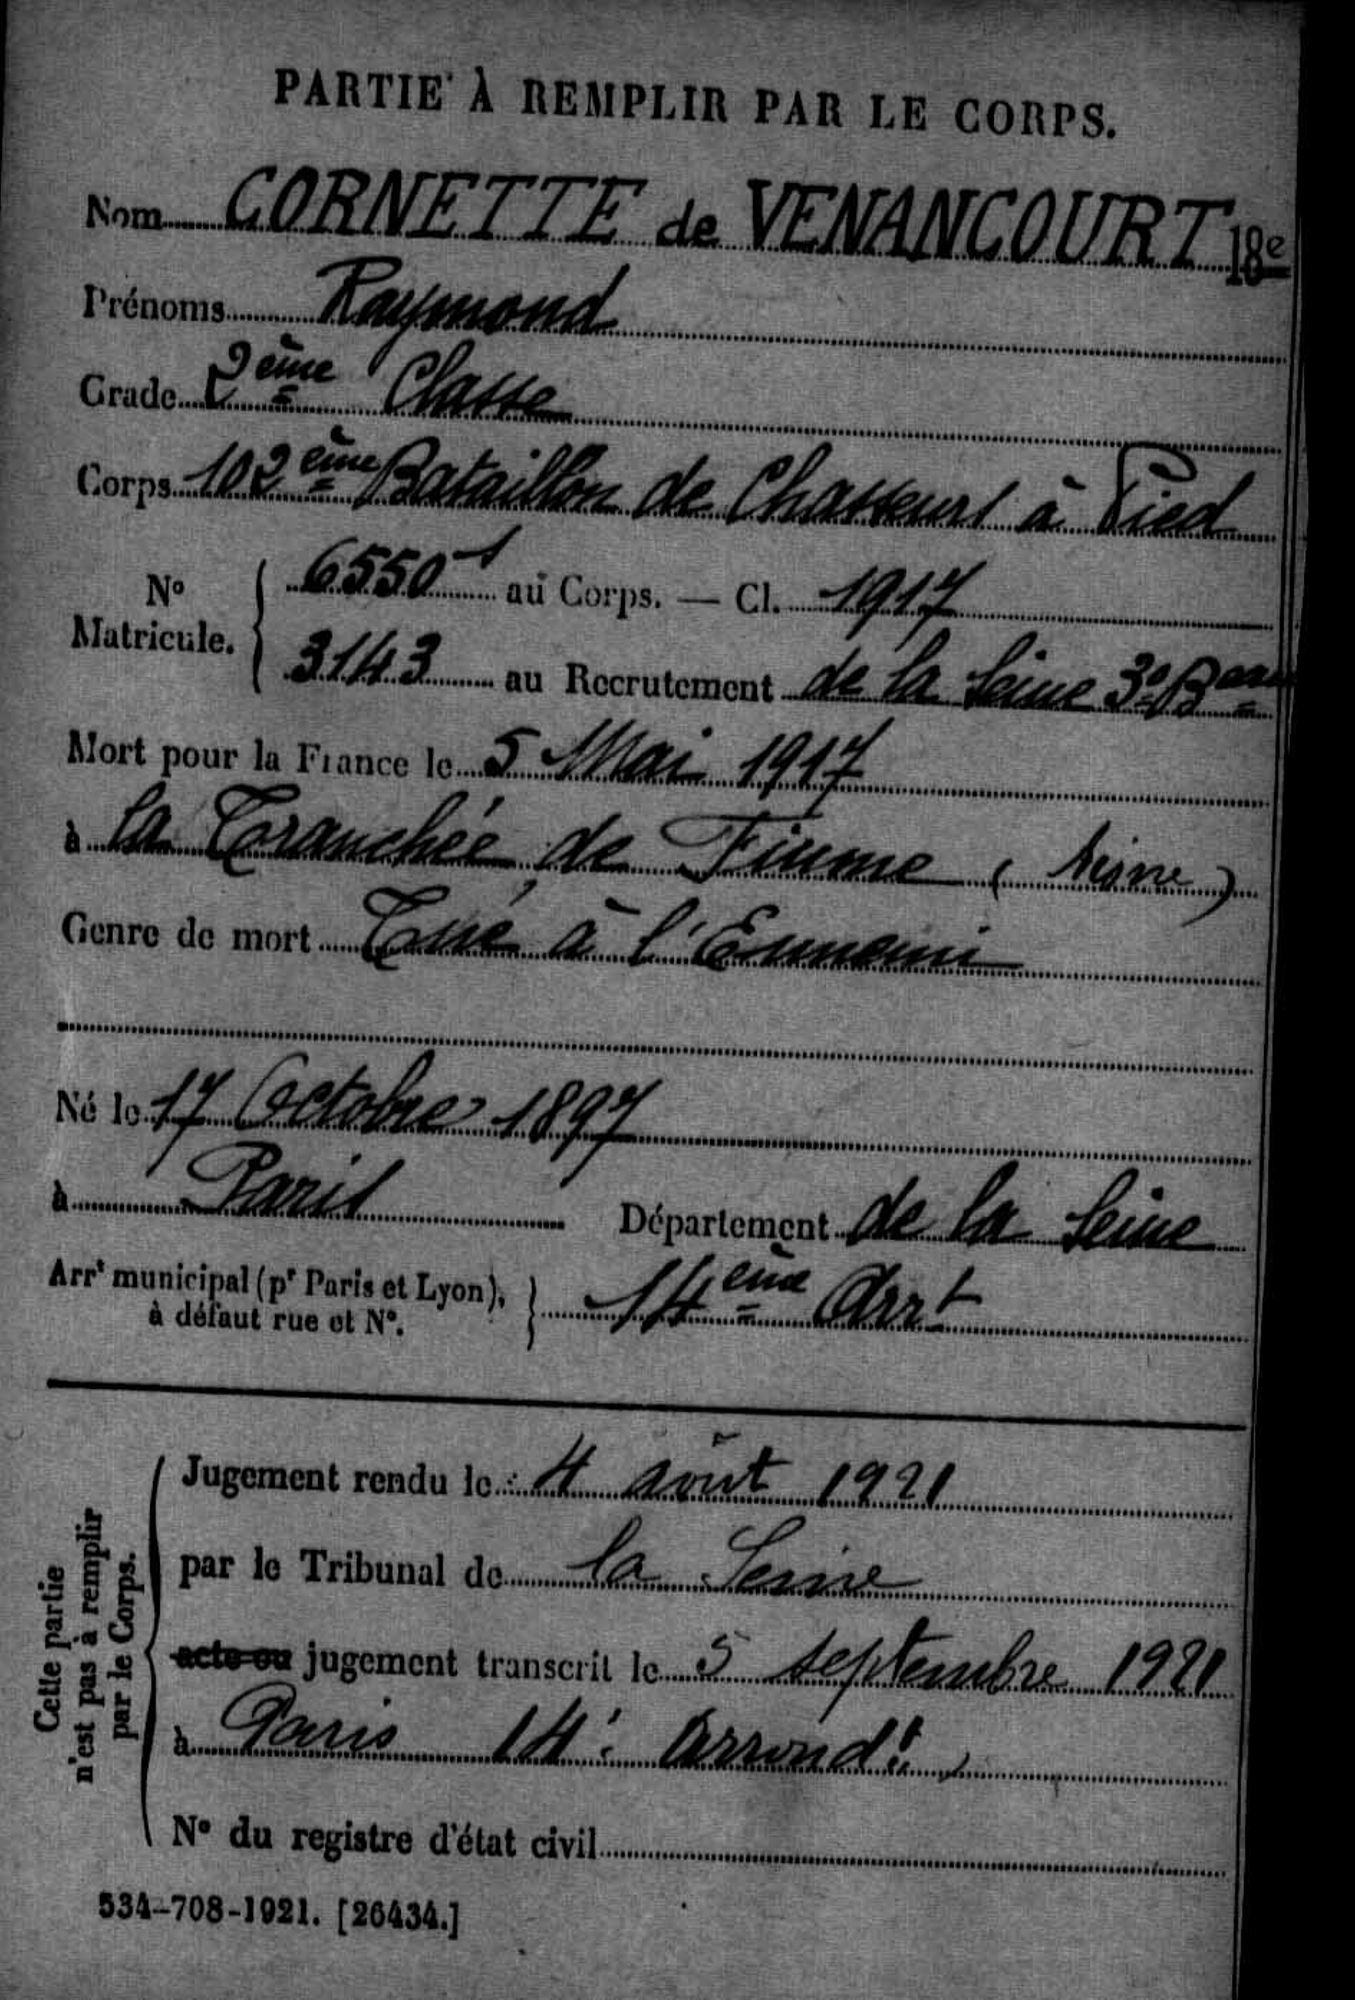 PARTIE À REMPLIR PAR LE CORPS.
Nom CORNETTE de VENANCOURT 18e
Prénoms Raymond
Grade 2ème Classe
Corps 102ème Bataillon de Chasseurs à Pied
No Matricule. 6550 1 au Corps. — Cl. 1917
3143 au Recrutement de la Seine 3e Beau
Mort pour la France le 5 Mai 1917
à la Tranchée de Fiume (Aisne)
Genre de mort Tué à l'Ennemi
Né le 17 Octobre 1897
à Paris Département de la Seine
Arrt municipal (pr Paris et Lyon), à défaut rue et No. 14ème Arrt
Cette partie n'est pas à remplir par le Corps.
Jugement rendu le 4 août 1921
par le Tribunal de la Seine
acte ou jugement transcrit le 5 septembre 1921
à Paris 14e Arrondt
No du registre d'état civil
534-708-1921. [26434.]